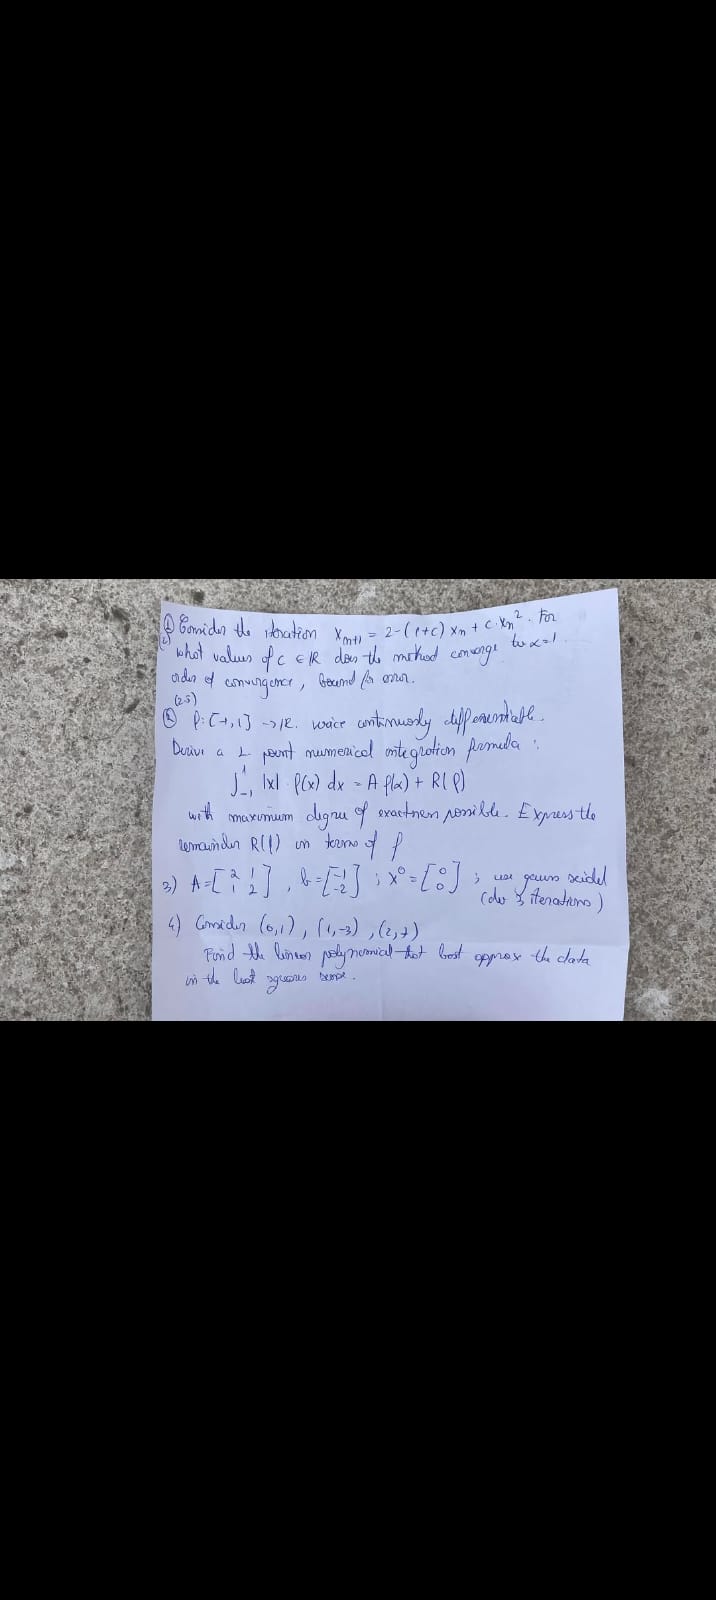 ① Consider the iteration x_{n+1} = 2-(1+c) x_n + c·x_n². For
(2) what values of c ∈ ℝ does the method converge to α=1.
order of convergence, bound for error.
(2.5)
② f:[-1,1] → ℝ. twice continuously differentiable.
Derive a 1 point numerical integration formula:
∫_{-1}^{1} |x| · f(x) dx = A f(α) + R(f)
with maximum degree of exactness possible. Express the
remainder R(f) in terms of f
3) A=[2 1; 1 2], b=[-1; -2]; x⁰=[0; 0]; use gauss seidel
(do 3 iterations)
4) Consider (0,1), (1,-3), (2,7)
Find the linear polynomial that best approx the data
in the least squares sense.